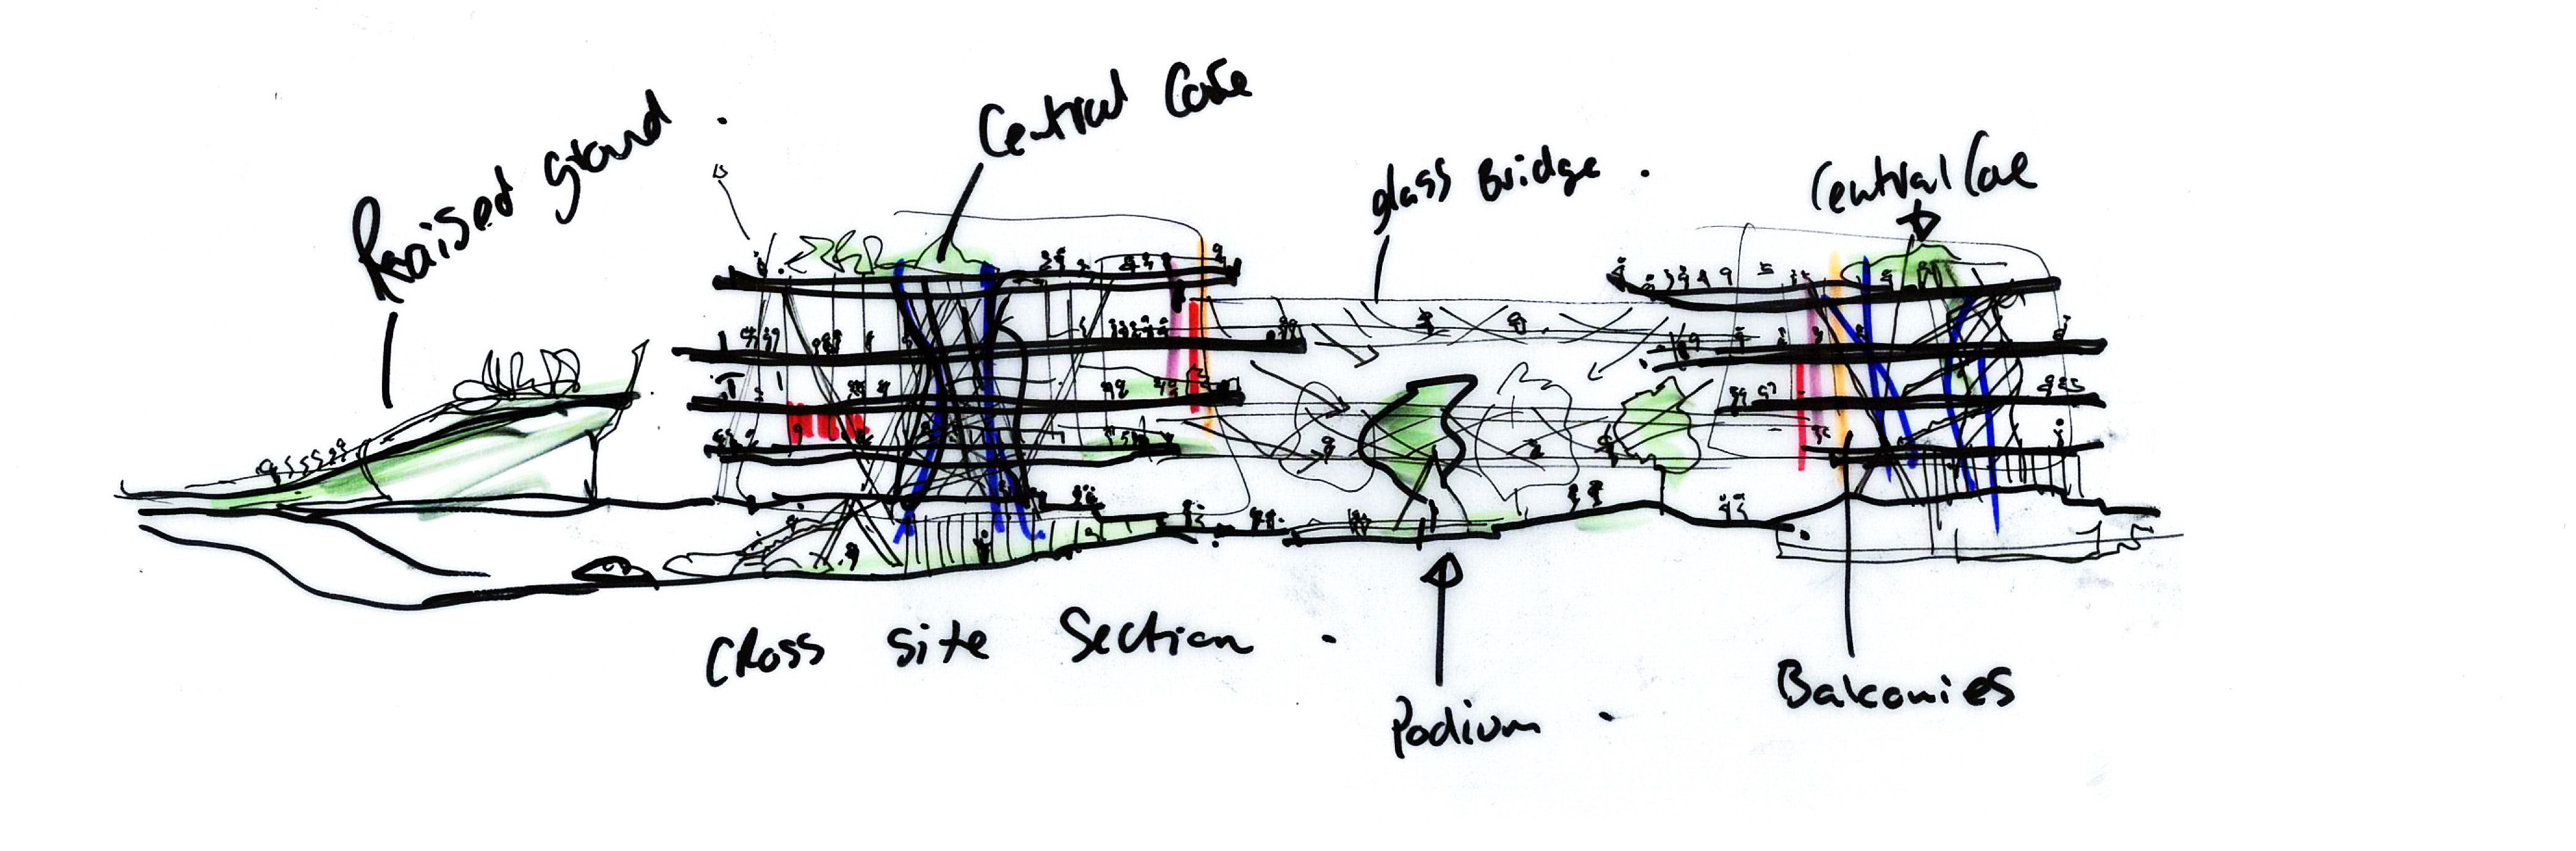 Raised ground.
Central Core
glass Bridge.
Central Core
Cross site Section.
Podium.
Balconies